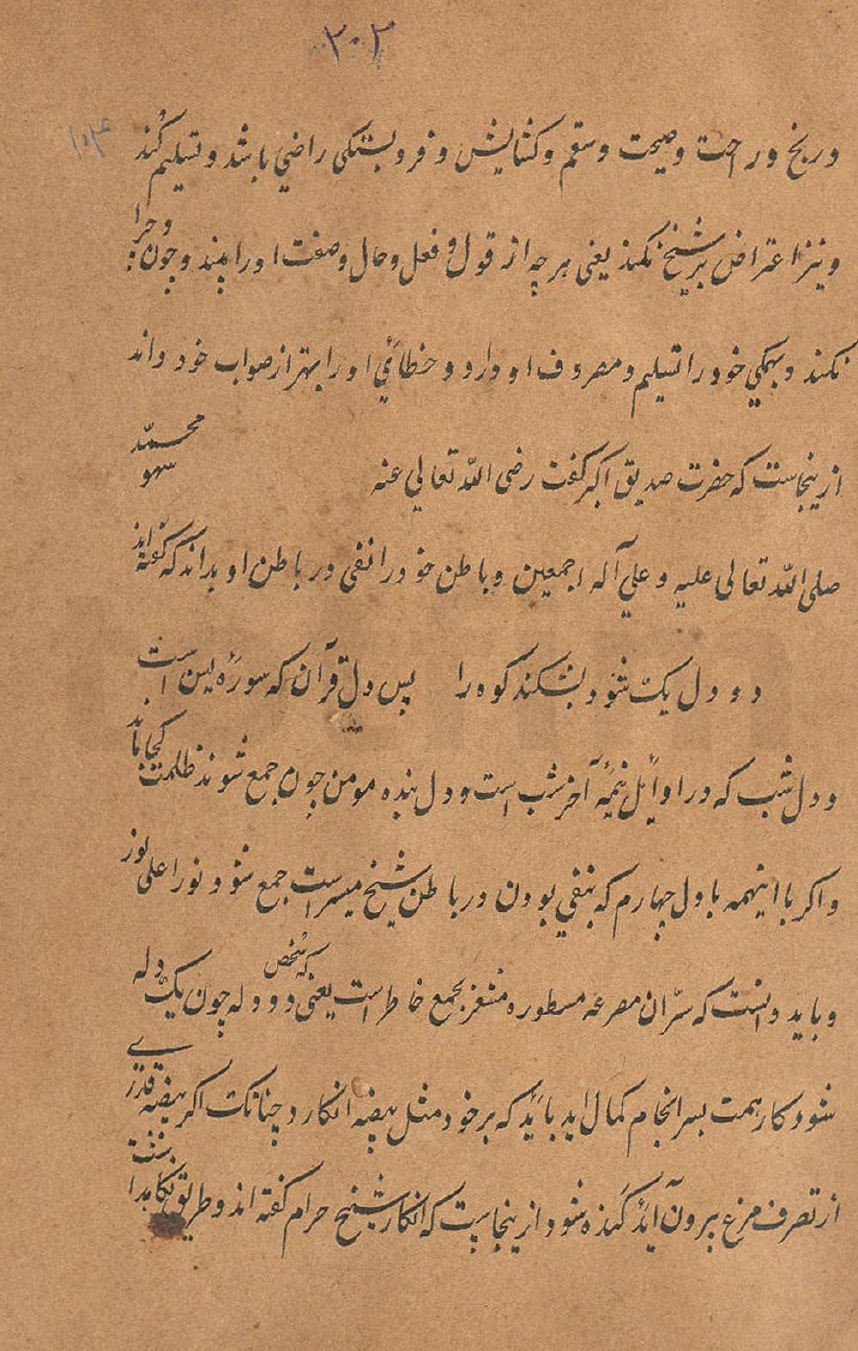 ۲۰۲
ورنج وراحت وصحت وسقم وکشایش وفروبستکی راضی باشد وتسلیم کند
ونیز اعتراض برشیخ نکند یعنی هرچه از قول و فعل وحال وصفت اورا بیند وچون وچرا
نکند وبهمکی خود را تسلیم ومصروف او دارد وخطائ اورا بهتر از صواب خود داند
ازینجاست که حضرت صدیق اکبر کفت رضی الله تعالی عنه سهو محمد
صلی الله تعالی علیه وعلی آله اجمعین وباطن خودرا نفی در باطن او بداند که کفته اند
دو دل یک شود بشکند کوه را پس دل قرآن که سورۀ یس است
ودل شب که در اوائل نیمۀ آخر شب است ودل بنده مومن چون جمع شوند ظلمت کجا ماند
واکر با اینهمه با دل چهارم که بنفی بودن در باطن شیخ میسر است جمع شود نورا علی نور
وباید دانست که سرّ آن مصرعه مسطوره بجمع خاطر است یعنی دو دله که شخص چون یک دله
شود کار همت بسرانجام کمال آید باید که برخود مثل بیضه انکارد چنانک اکر بیضه قدری
از تصرف مرغ بیرون آید کنده شود ازینجاست که انکار شیخ حرام کفته اند وطریق